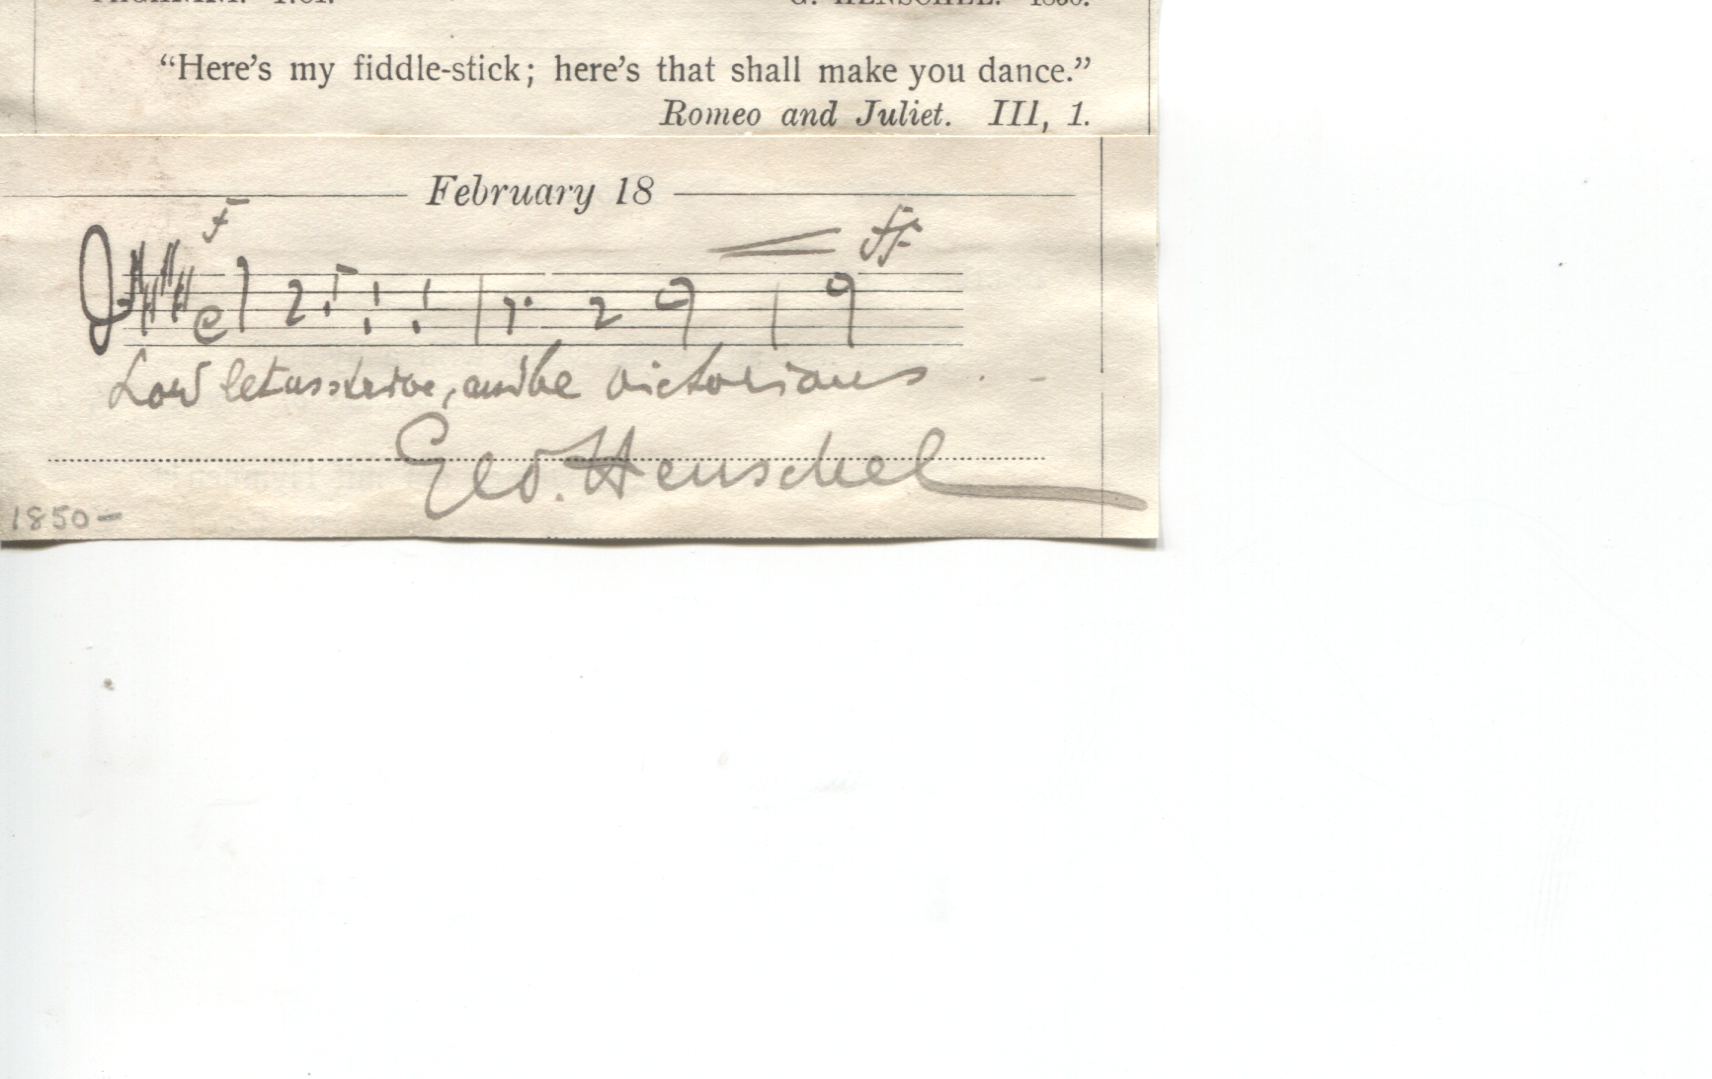 PAGANINI. 1784. G. HENSCHEL. 1850.
“Here’s my fiddle-stick; here’s that shall make you dance.”
Romeo and Juliet. III, 1.
February 18
f ff
Lord let us strive, and be victorious . -
Geo. Henschel
1850-